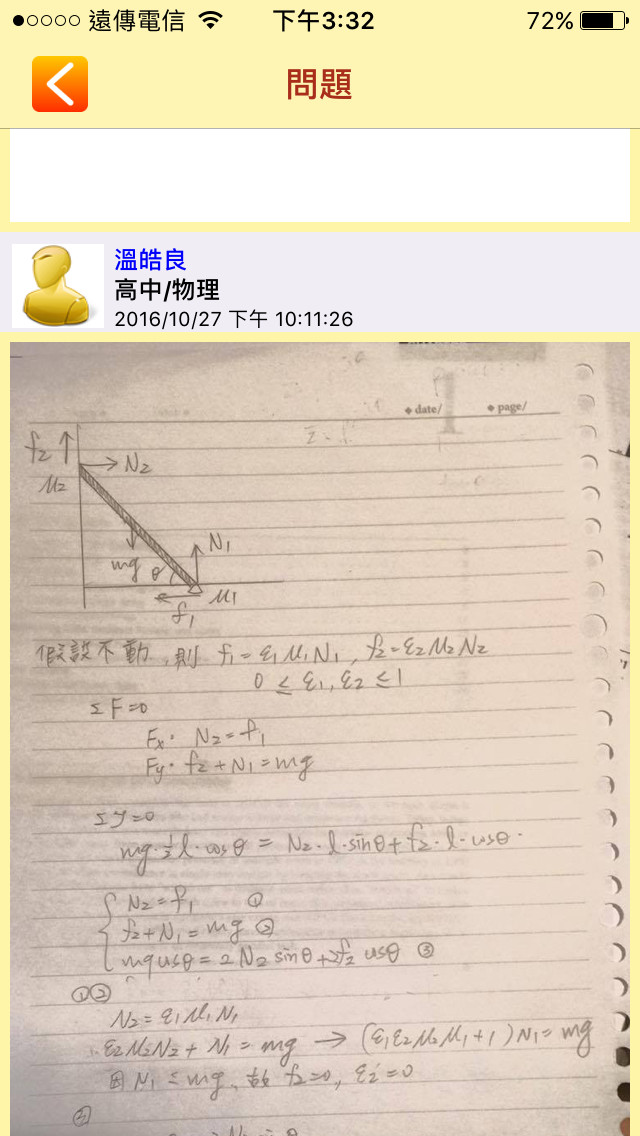 遠傳電信 下午3:32 72%
問題
溫皓良
高中/物理
2016/10/27 下午 10:11:26
◆ date/ ◆ page/
f₂ ↑ → N₂
μ₂
mg θ N₁
μ₁
f₁
假設不動, 則 f₁=ε₁μ₁N₁, f₂=ε₂μ₂N₂
0 ≤ ε₁, ε₂ ≤ 1
ΣF=0
Fx: N₂=f₁
Fy: f₂+N₁=mg
Στ=0
mg·½l·cosθ = N₂·l·sinθ+f₂·l·cosθ
{ N₂=f₁ ①
f₂+N₁=mg ②
mgcosθ=2N₂sinθ+2f₂cosθ ③
①②
N₂=ε₁μ₁N₁
ε₂μ₂N₂+N₁=mg → (ε₁ε₂μ₂μ₁+1)N₁=mg
因N₁≤mg, 故 f₂=0, ε₂=0